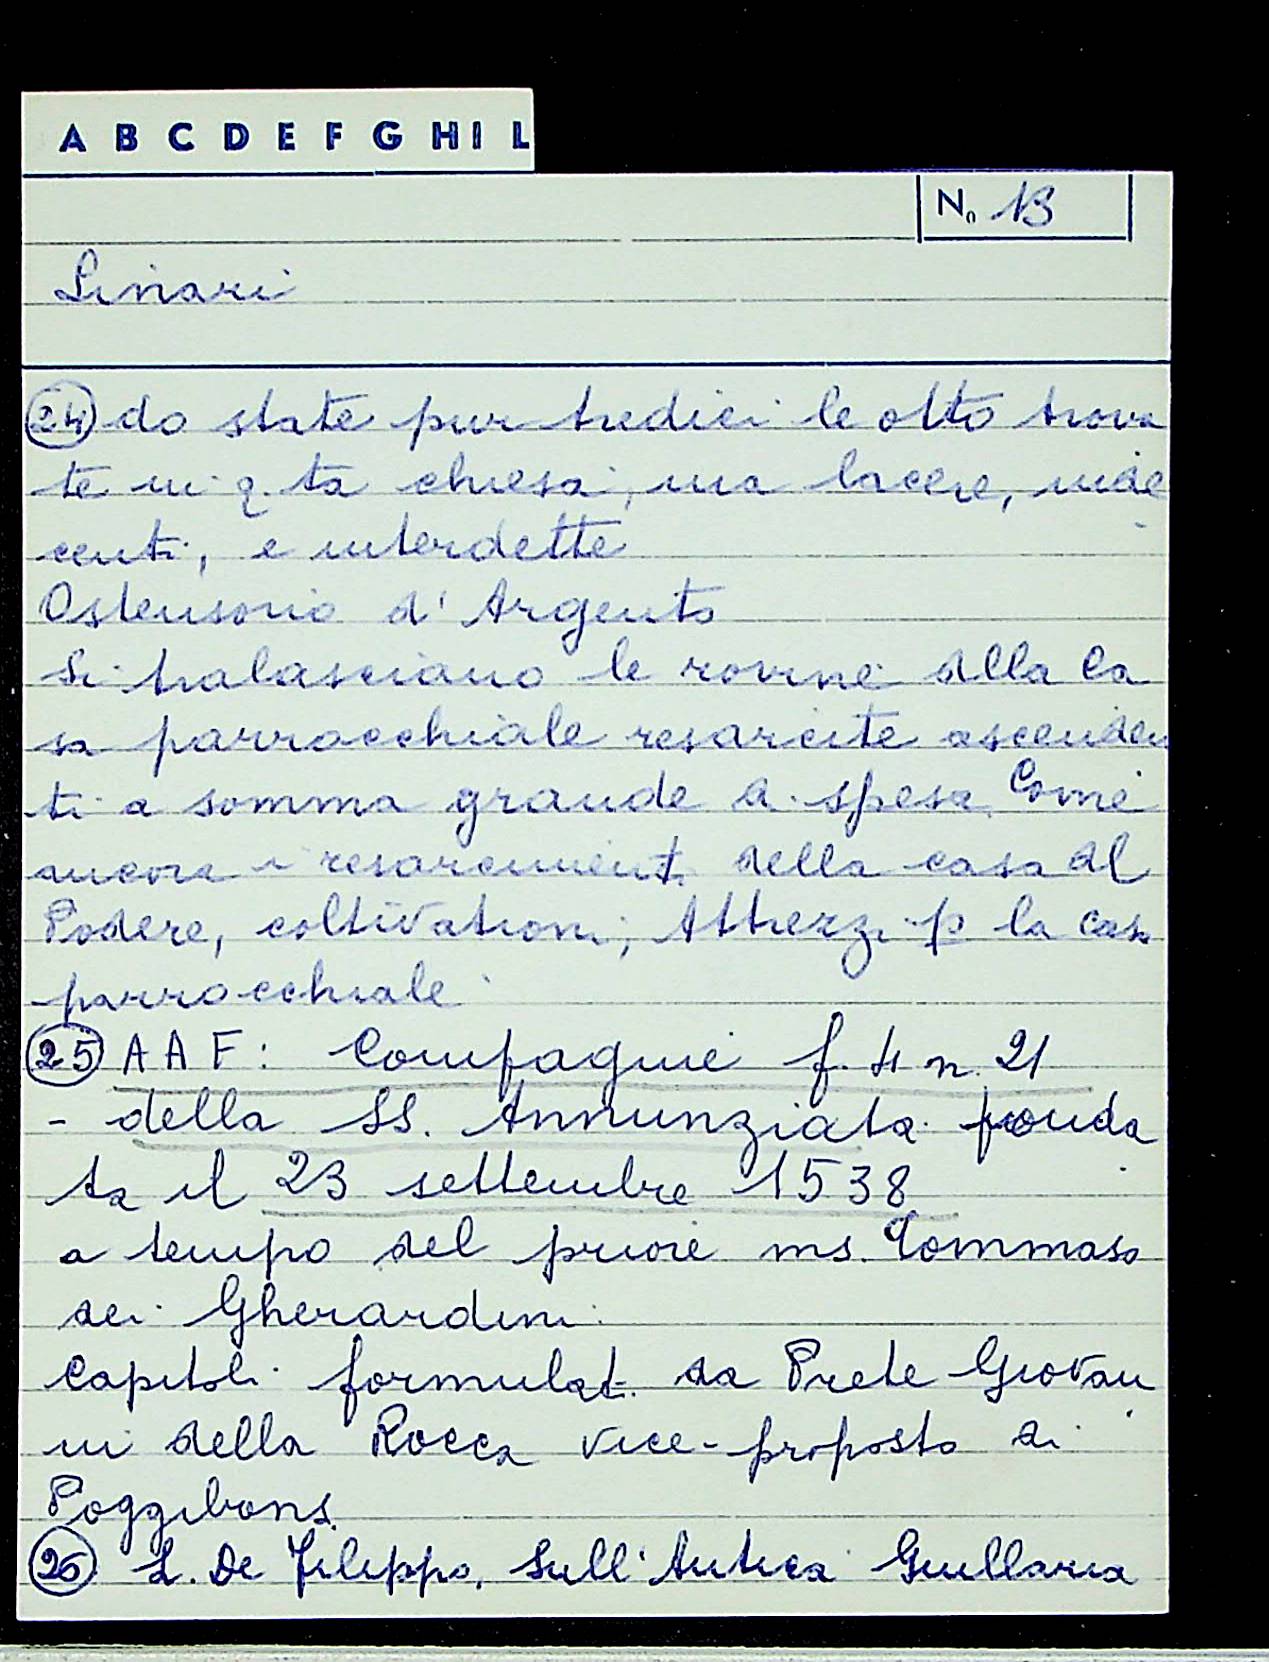 A B C D E F G H I L
N. 13
Linari
24 do state pur tredici le otto trova
te in q.ta chiesa, ma lacere, inde
centi, e interdette
Ostensorio d'Argento
Si tralasciano le rovine della ca
sa parrocchiale resarcite ascenden
ti a somma grande di spesa. Come
ancora i resarcimenti della casa del
Podere, coltivationi, Attrezzi p la casa
parrocchiale
25 A A F: Compagnie f. 4 n. 21
- della SS. Annunziata fonda
ta il 23 settembre 1538
a tempo del priore ms. Tommaso
dei Gherardini
Capitoli formulati da Prete Giovan
ni della Rocca vice-proposto di
Poggibonsi
26 L. De Filippo, Sull'Antica Giullaria